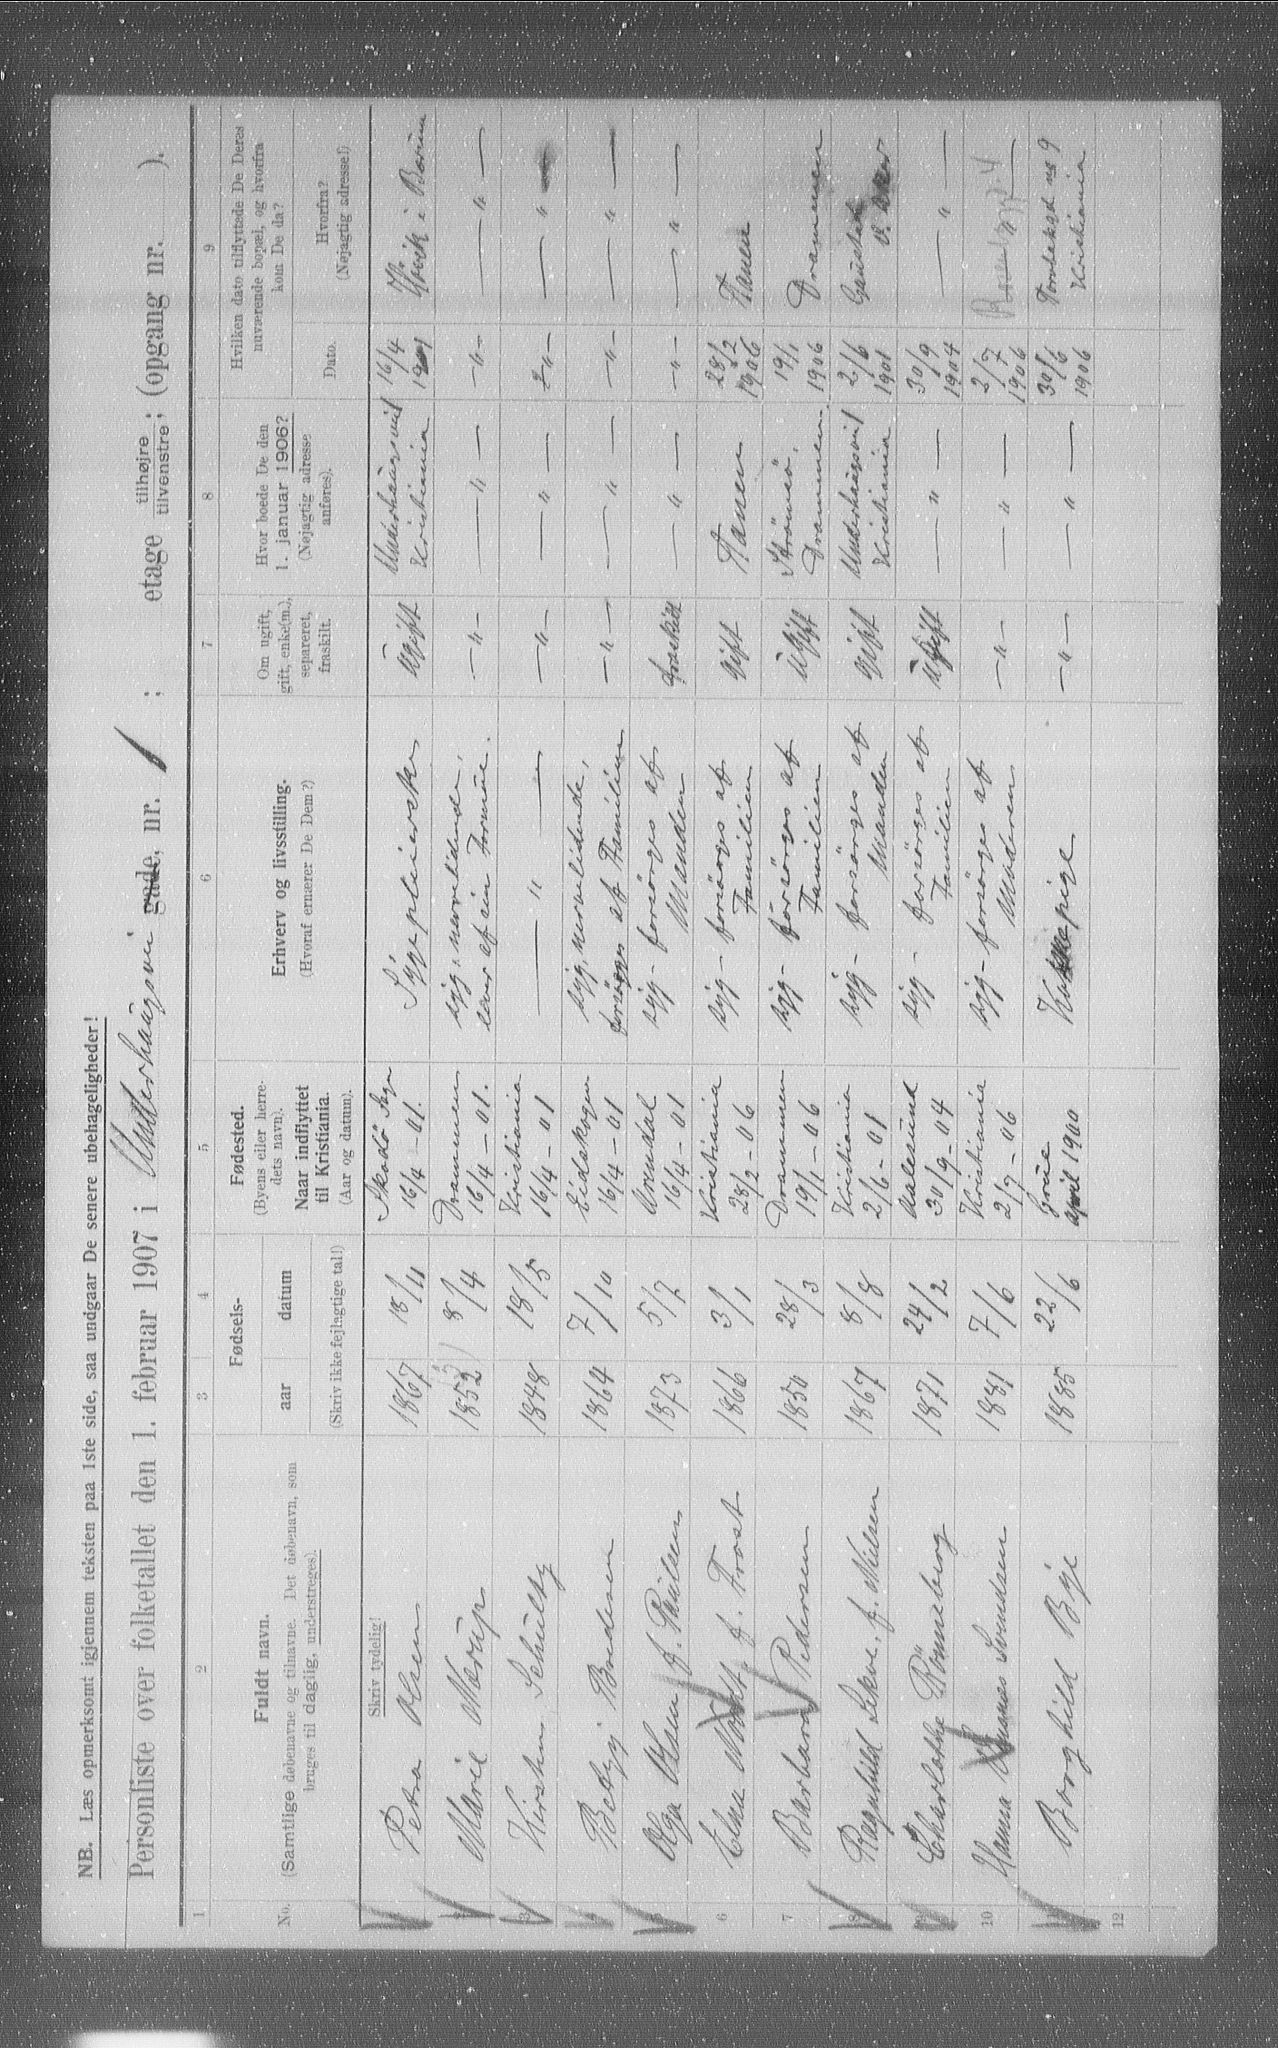 NB. Læs opmerksomt igjennem teksten paa 1ste side, saa undgaar De senere ubehageligheder!
Personliste over folketallet den 1. februar 1907 i Underhaugsvei gade, nr. 1 ; etage tilhøjre tilvenstre; (opgang nr. ).
1 2 3 4 5 6 7 8 9
No.
Fuldt navn.
(Samtlige døbenavne og tilnavne. Det døbenavn, som
bruges til daglig, understreges).
Fødsels-
aar datum
(Skriv ikke fejlagtige tal!)
Fødested.
(Byens eller herre-
dets navn).
Naar indflyttet
til Kristiania.
(Aar og datum).
Erhverv og livsstilling.
(Hvoraf ernærer De Dem?)
Om ugift,
gift, enke(m.),
separeret,
fraskilt.
Hvor boede De den
1. januar 1906?
(Nøjagtig adresse
anføres).
Hvilken dato tilflyttede De Deres
nuværende bopæl, og hvorfra
kom De da?
Dato.
Hvorfra?
(Nøjagtig adresse!)
Skriv tydelig!
Petra Olsen 1867 18/11 Skodö 16/4-01. Sygepleierske Ugift Underhaugsveil Kristiania 16/4 1901 i Bærum
2 Marie Nærup 1852 8/4 Drammen 16/4-01. syg, nervelidende, lever af sin Formue. -"- -"- -"- -"-
3 Kirsten Schultz 1848 18/5 Kristiania 16/4-01 -"- -"- -"- -"- -"-
4 Betzy Bredesen 1864 7/10 Eidskogen 16/4-01 syg, nervelidende, forsørges af Familien -"- -"- -"- -"-
5 Olga Olsen f. Paulsen 1873 5/7 Arendal 16/4-01 syg - forsörges af Manden fraskilt -"- -"- -"-
6 f. Frost 1866 3/1 Kristiania 28/2-06 syg - forsörges af Familien Gift Fanen 28/2 1906 Fanen
7 Barbara Pedersen 1850 28/3 Drammen 19/1-06 syg - forsörges af Familien Ugift Strömsö, Drammen. 19/1 1906 Drammen
8 Ragnhild f. Nielsen 1867 8/8 Kristiania 2/6-01 syg - forsörges af Manden gift Underhaugsveil Kristiania 2/6 1901 Gaustad V. Aker
9 Charlotte Rönneberg 1871 24/2 Aalesund 30/9-04 syg - forsörges af Familien Ugift -"- 30/9 1904 -"-
10 Hanna Svendsen 1881 7/6 Kristiania 2/7-06 syg - forsörges af Moderen -"- -"- 2/7 1906
Borghild Bye 1885 22/6 Grue april 1900 -"- -"- 30/6 1906 no 9 Kristiania
12